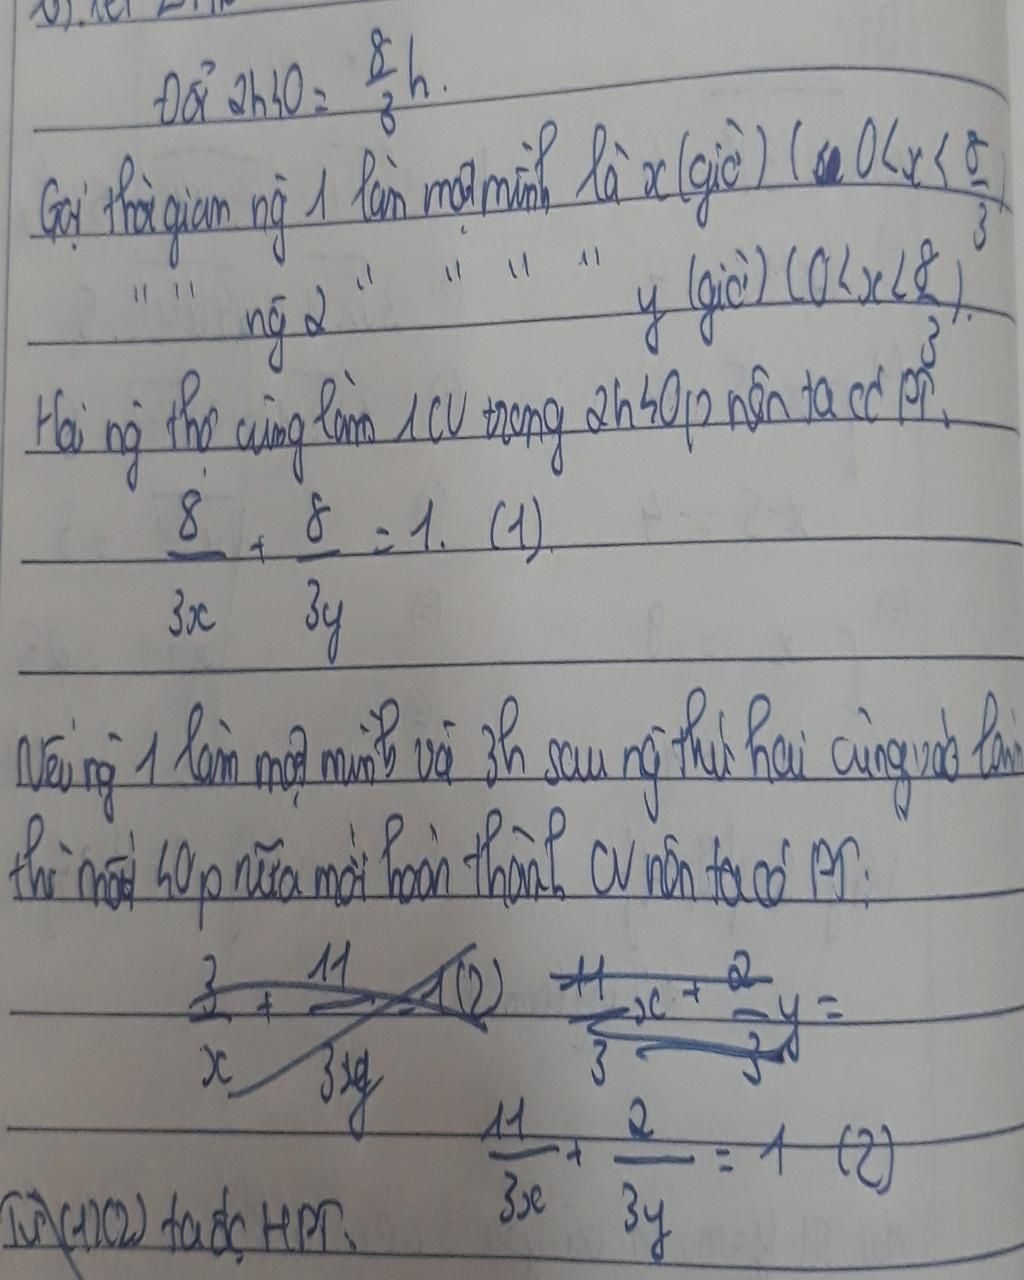 Đổi 2h40 = 8/3 h.
Gọi thời gian ng 1 làm một mình là x (giờ) ( 0 < x < 8/3
" " ng 2 " " " " y (giờ) (0 < x < 8/3).
Hai ng thợ cùng làm 1 CV trong 2h40p nên ta có pt.
8/3x + 8/3y = 1. (1)
Nếu ng 1 làm một mình và 3h sau ng thứ hai cùng vào làm
thì 40p nữa mới hoàn thành CV nên ta có PT:
3/x + 11/3xy = 1 (2) 11/3 x + 2/3 y =
11/3x + 2/3y = 1 (2)
Từ (1)(2) ta đc HPT.